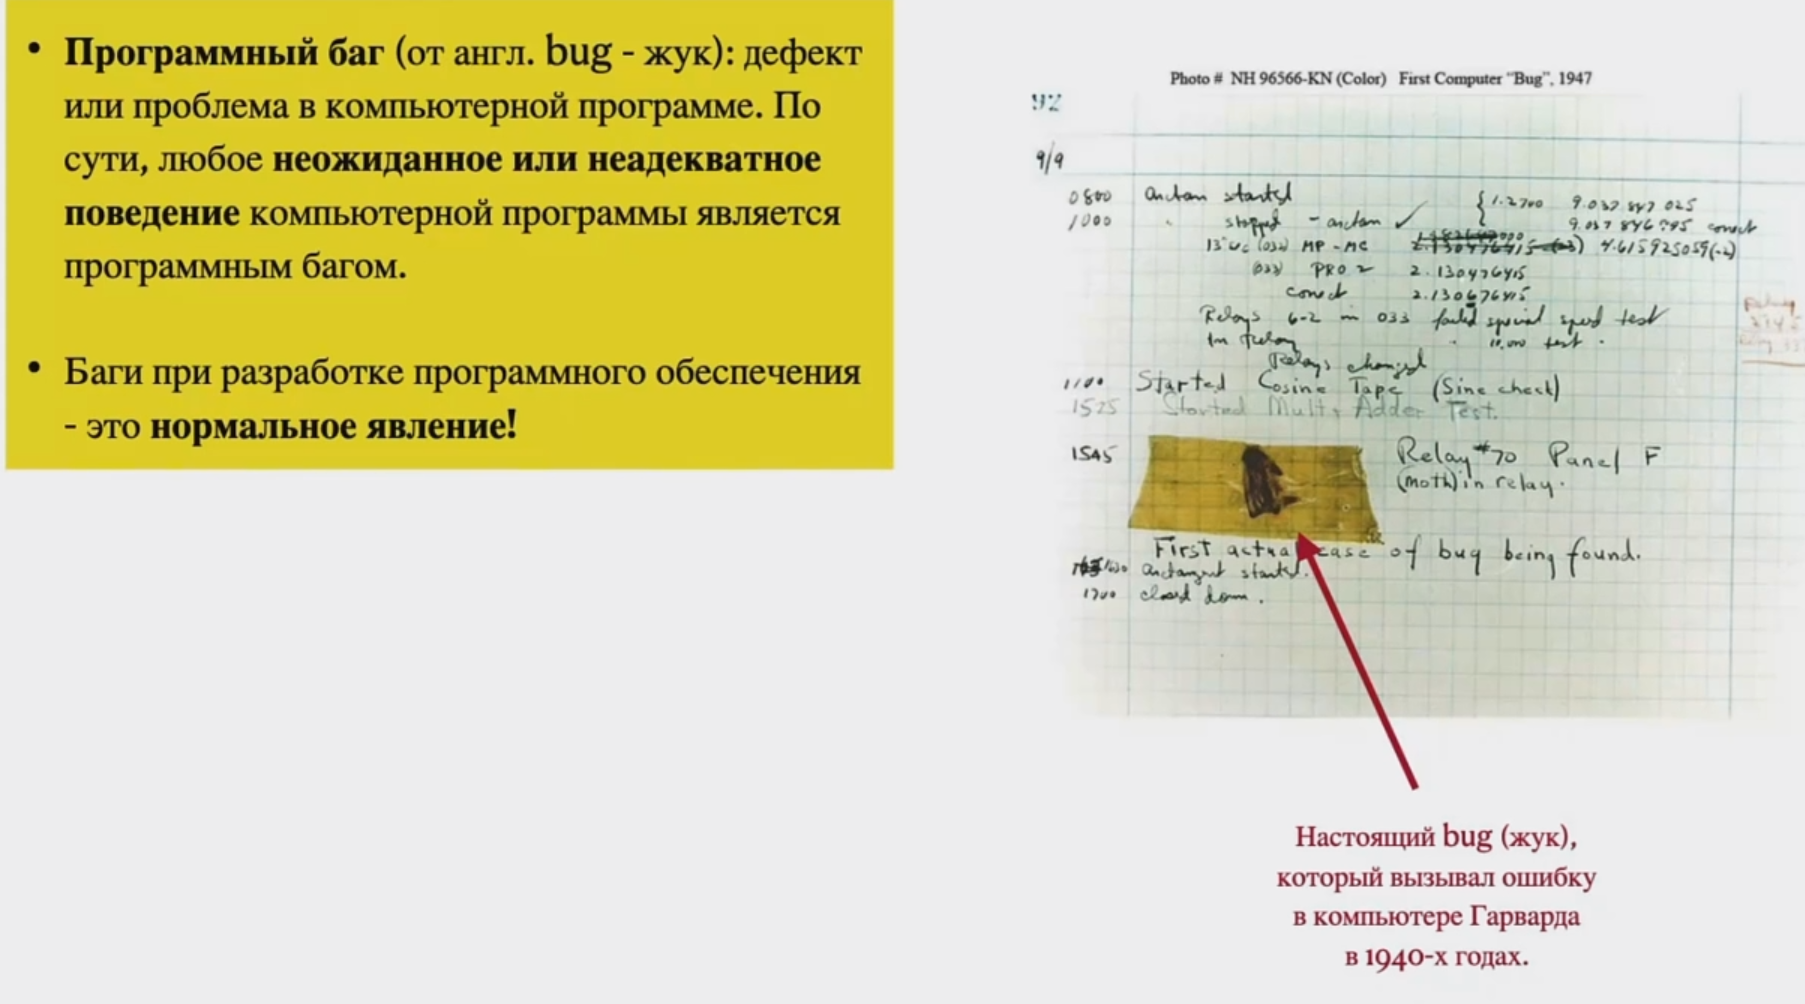 • Программный баг (от англ. bug - жук): дефект
или проблема в компьютерной программе. По
сути, любое неожиданное или неадекватное
поведение компьютерной программы является
программным багом.
• Баги при разработке программного обеспечения
- это нормальное явление!
Photo # NH 96566-KN (Color) First Computer "Bug", 1947
92
9/9
0800 Antan started
1000 " stopped - antan ✓ { 1.2700 9.037 847 025
9.037 846 795 correct
13"uc (032) MP - MC 4.615925059(-2)
(033) PRO 2 2.130476415
correct 2.130676415
Relays 6-2 in 033 failed special speed test
In Relay " 10,000 test .
Relays changed
1100 Started Cosine Tape (Sine check)
1525 Started Mult + Adder Test.
1545 Relay #70 Panel F
(moth) in relay.
First actual case of bug being found.
1630 antangent started.
1700 closed down.
Настоящий bug (жук),
который вызывал ошибку
в компьютере Гарварда
в 1940-х годах.